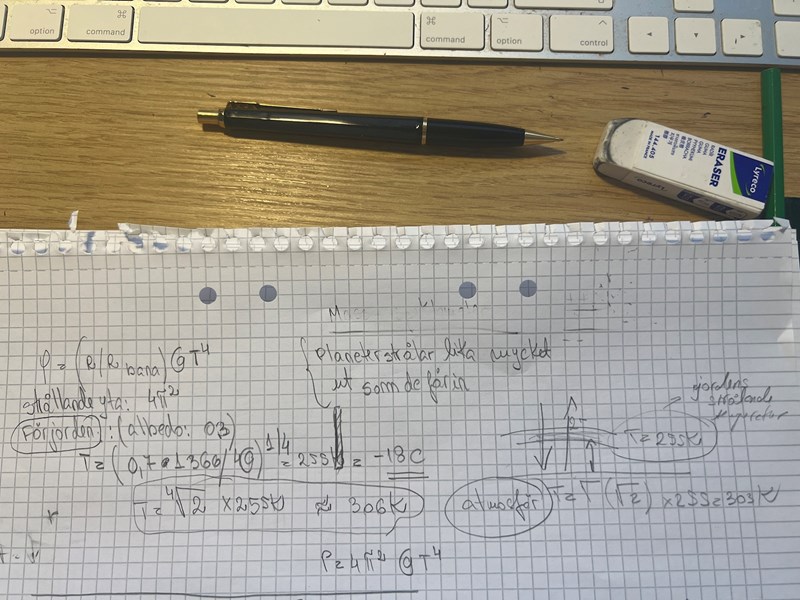 option
⌘
command
⌘
command
⌥
option
control
Lyreco
ERASER
144.405
φ = (R/R bana) G T⁴
strålande yta: 4π²
För jorden: (albedo: 03)
T = (0,7 • 1366/4G)^1/4 = 255K = -18C
T = ⁴√2 × 255K ≈ 306K
{planeter strålar lika mycket
ut som de får in
jordens
strålande
T = 255K
atmosfär T = √(√2) × 255 = 303K
P = 4π² G T⁴